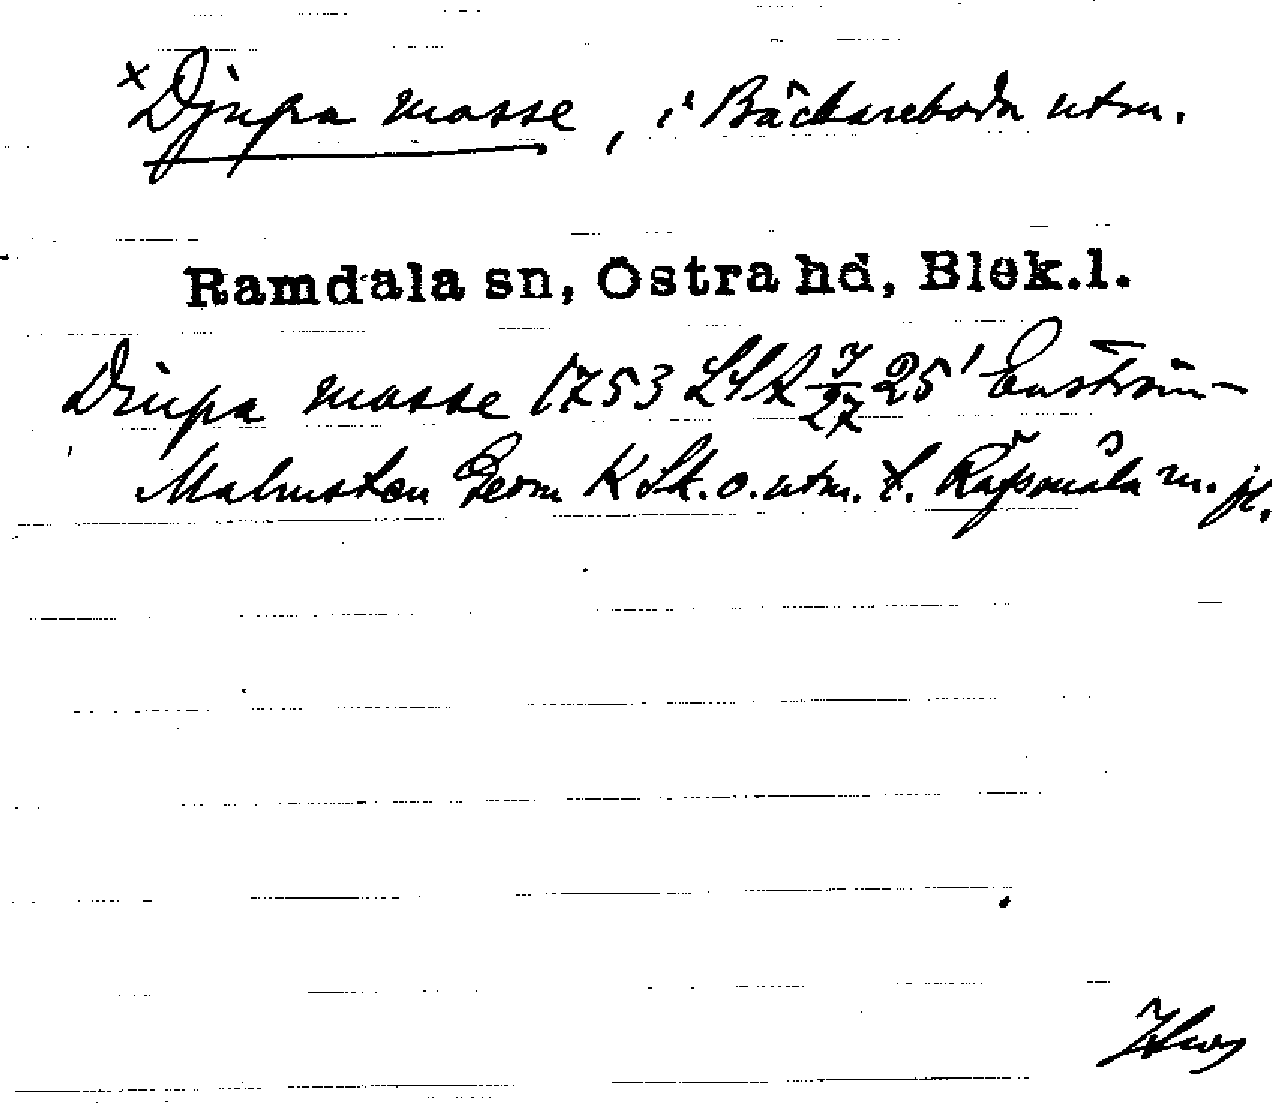 × Djupa mosse, i Bäckareboda utm.
Ramdala sn, Östra hd, Blek.l.
Diupa mosse 1753 LSA 7/27 25' Enström-
Malmsten Geom K Sk. o. utm. t. Råpmåla m. fl.